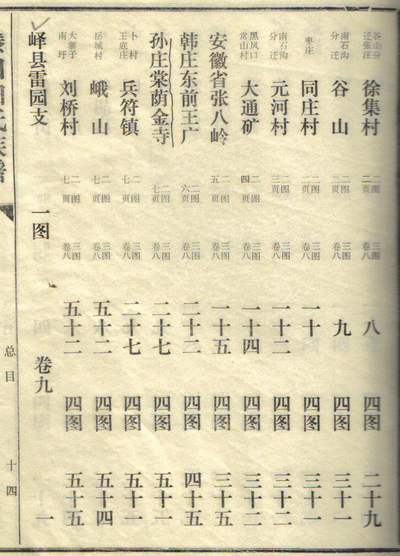 谷山分迁张汪 徐集村 二图二页 三图卷八 八 四图 二十九
南石沟分迁 谷山 二图二页 三图卷八 九 四图 三十
枣庄 同庄村 二图 三图卷八 十 四图 三十一
南石沟分迁 元河村 二图三页 三图卷八 十二 四图 三十二
黑风口常山村 大通矿 二图四页 三图卷八 十四 四图 三十二
安徽省张八岭 二图五 三图卷八 十五 四图 三十五
韩庄东前王广 二图六页 三图卷八 二十二 四图 四十五
孙庄棠荫金寺 二图七页 三图卷八 二十七 四图 五十一
卜村王底庄 兵符镇 二图七页 三图卷八 二十七 四图 五十一
岳城村 峨山 二图七页 三图卷八 五十二 四图 五十四
大寨子南圩 刘桥村 二图七页 三图卷八 五十二 四图 五十五
峄县雷园支 一图 卷九 一
氏族谱 总目 十四